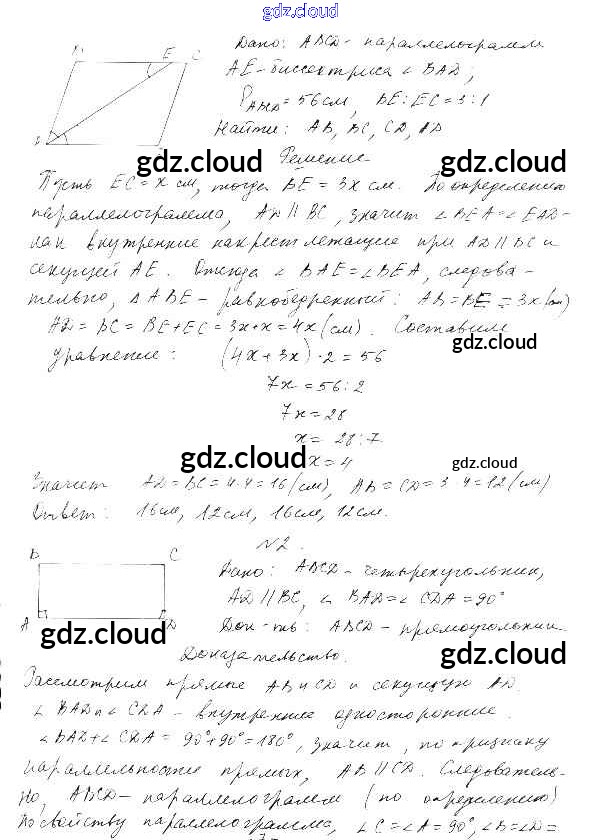 gdz.cloud
B E C
A D
Дано: ABCD - параллелограмм
AE - биссектриса ∠ BAD;
P ABCD = 56 см, BE : EC = 3 : 1
Найти: AB, BC, CD, AD
gdz.cloud Решение gdz.cloud
Пусть EC = x см, тогда BE = 3x см. По определению
параллелограмма, AD || BC, значит ∠ BEA = ∠ EAD -
как внутренние накрест лежащие при AD || BC и
секущей AE. Отсюда ∠ BAE = ∠ BEA, следова-
тельно, △ ABE - равнобедренный: AB = BE = 3x (см)
AD = BC = BE + EC = 3x + x = 4x (см). Составим
gdz.cloud
уравнение: (4x + 3x) · 2 = 56
7x = 56 : 2
gdz.cloud
7x = 28
x = 28 : 7
gdz.cloud x = 4 gdz.cloud
Значит AD = BC = 4 · 4 = 16 (см), AB = CD = 3 · 4 = 12 (см)
Ответ: 16 см, 12 см, 16 см, 12 см.
N 2.
B C
A D
Дано: ABCD - четырехугольник,
AD || BC, ∠ BAD = ∠ CDA = 90°
Док-ть: ABCD - прямоугольник.
gdz.cloud
Доказательство. gdz.cloud
Рассмотрим прямые AB и CD и секущую AD.
∠ BAD и ∠ CDA - внутренние односторонние.
∠ BAD + ∠ CDA = 90° + 90° = 180°, значит, по признаку
gdz.cloud gdz.cloud
параллельности прямых, AB || CD. Следователь-
но, ABCD - параллелограмм (по определению)
По свойству параллелограмма, ∠ C = ∠ A = 90°, ∠ B = ∠ D =